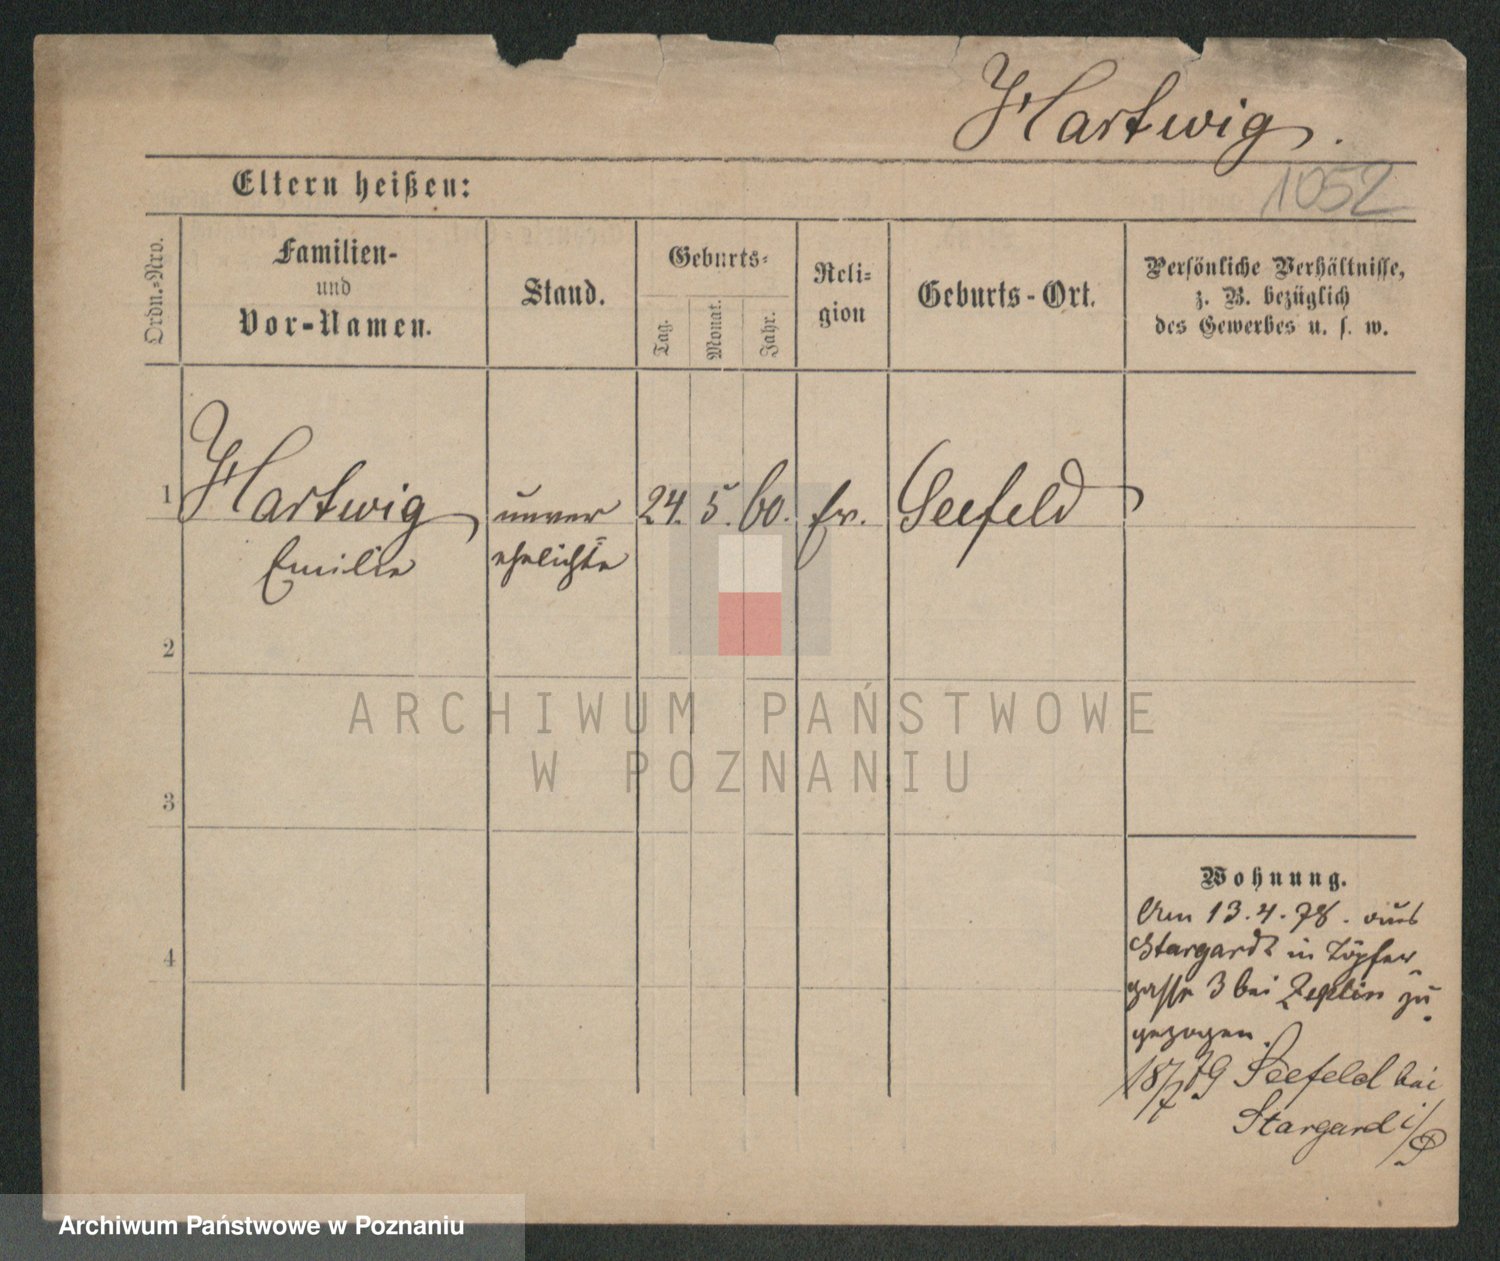 Hartwig.
1052
Eltern heißen:
Ordn.-Nro.
Familien-
und
Vor-Namen.
Stand.
Geburts-
Tag.
Monat.
Jahr.
Reli-
gion
Geburts-Ort.
Persönliche Verhältnisse,
z. B. bezüglich
des Gewerbes u. s. w.
1
Hartwig
Emilie
unver
ehelichte
24.
5.
60.
ev.
Seefeld
2
3
4
Wohnung.
Am 13.4.78. aus
Stargardt in Töpfer
gasse 3 bei Zeplin zu
gezogen.
18/7 79 Seefeld bei
Stargard i/P
ARCHIWUM PAŃSTWOWE
W POZNANIU
Archiwum Państwowe w Poznaniu